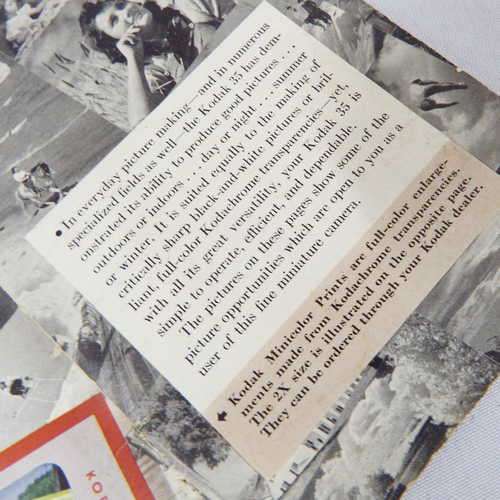 • In everyday picture making—and in numerous
specialized fields as well—the Kodak 35 has dem-
onstrated its ability to produce good pictures . . .
outdoors or indoors . . . day or night . . . summer
or winter. It is suited equally to the making of
critically sharp black-and-white pictures or bril-
liant, full-color Kodachrome transparencies—yet,
with all its great versatility, your Kodak 35 is
simple to operate, efficient, and dependable.
The pictures on these pages show some of the
picture opportunities which are open to you as a
user of this fine miniature camera.
Kodak Minicolor Prints are full-color enlarge-
ments made from Kodachrome transparencies.
The 2X size is illustrated on the opposite page.
They can be ordered through your Kodak dealer.